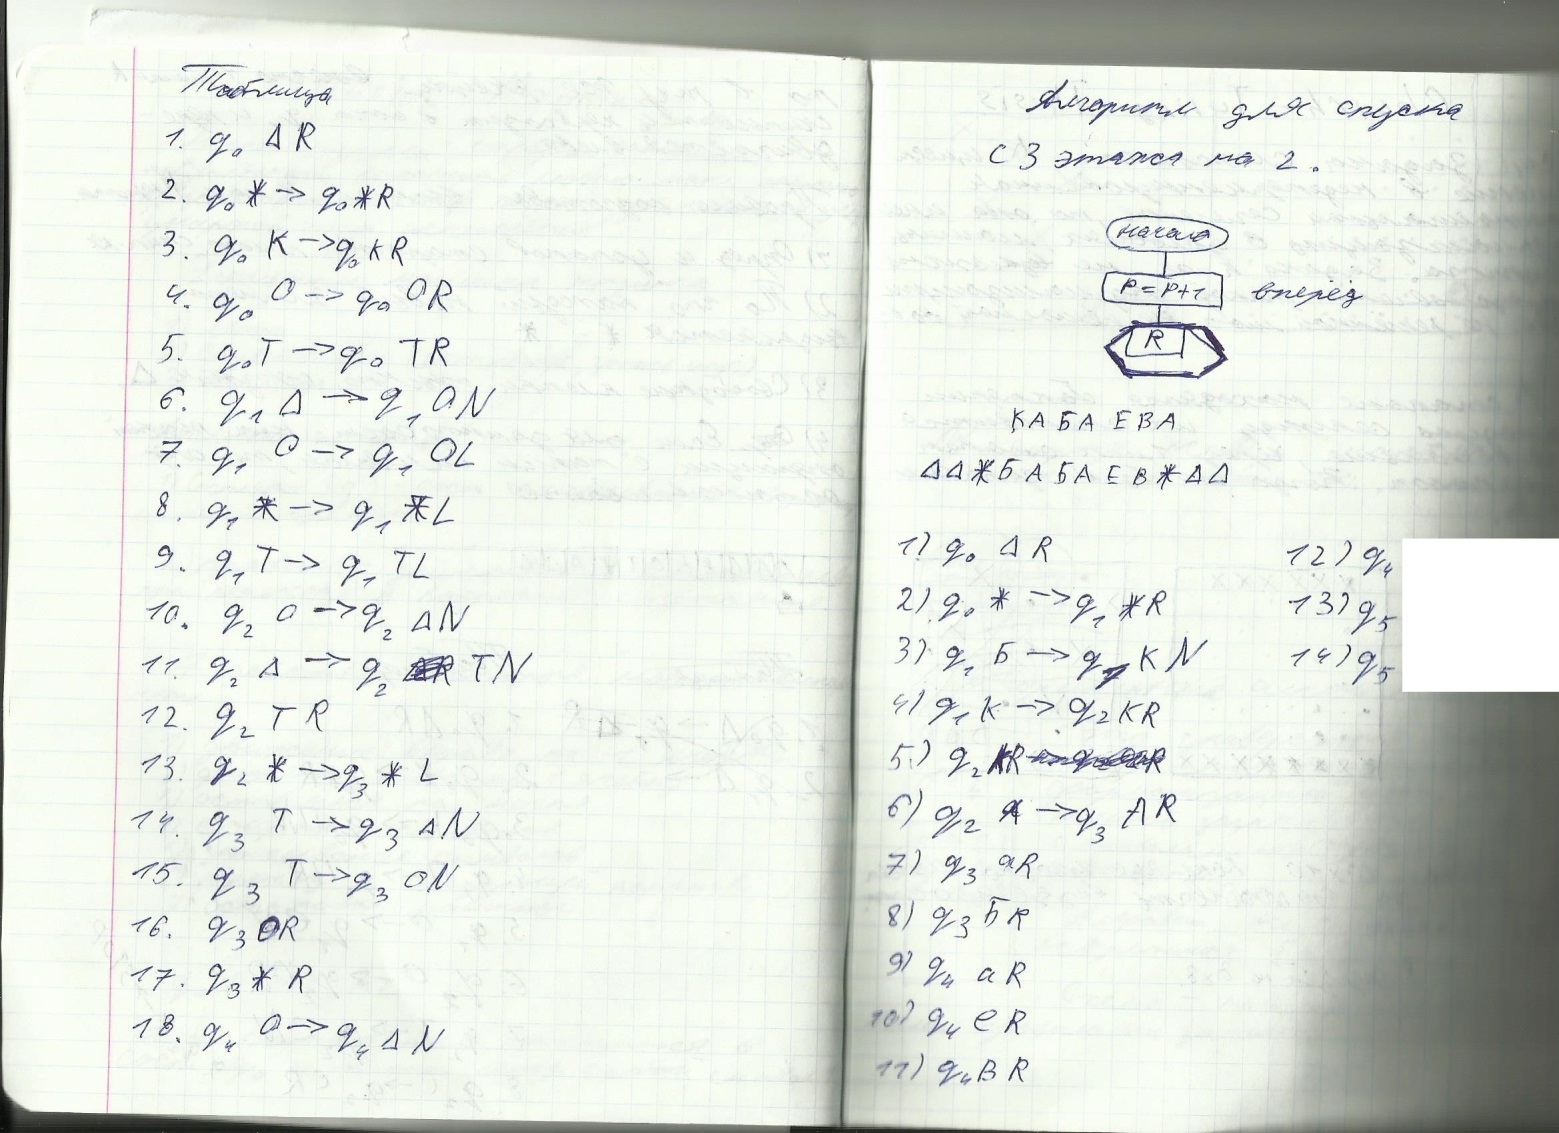 Таблица
1. q₀ Δ R
2. q₀ * → q₀ * R
3. q₀ K → q₀ K R
4. q₀ O → q₀ O R
5. q₀ T → q₀ T R
6. q₁ Δ → q₁ O N
7. q₁ O → q₁ O L
8. q₁ * → q₁ * L
9. q₁ T → q₁ T L
10. q₂ O → q₂ Δ N
11. q₂ Δ → q₂ T N
12. q₂ T R
13. q₂ * → q₃ * L
14. q₃ T → q₃ Δ N
15. q₃ T → q₃ O N
16. q₃ O R
17. q₃ * R
18. q₄ O → q₄ Δ N
Алгоритм для спуска
с 3 этажа на 2.
начало
P = P+1 вперёд
R
КАБАЕВА
ΔΔ*БАБАЕВ*ΔΔ
1) q₀ Δ R
2) q₀ * → q₁ * R
3) q₁ Б → q₁ K N
4) q₁ K → q₂ K R
5) q₂
6) q₂ → q₃ A R
7) q₃ a R
8) q₃ Б R
9) q₄ a R
10) q₄ e R
11) q₄ B R
12) q₄
13) q₅
14) q₅